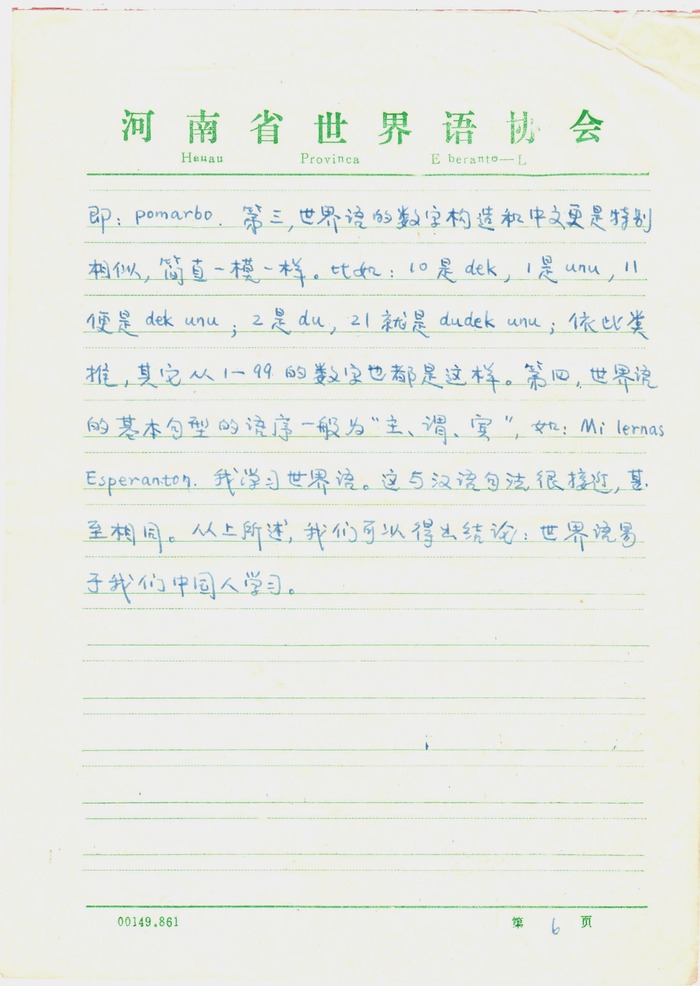 河南省世界语协会
Henan Provinca E beranto—L
即：pomarbo. 第三,世界语的数字构造和中文更是特别
相似，简直一模一样。比如：10是dek，1是unu，11
便是dek unu；2是du，21就是dudek unu；依此类
推，其它从1—99的数字也都是这样。第四，世界语
的基本句型的语序一般为“主、谓、宾”，如：Mi lernas
Esperanton. 我学习世界语。这与汉语句法很接近，甚
至相同。从上所述，我们可以得出结论：世界语易
于我们中国人学习。
00149.861 第 6 页